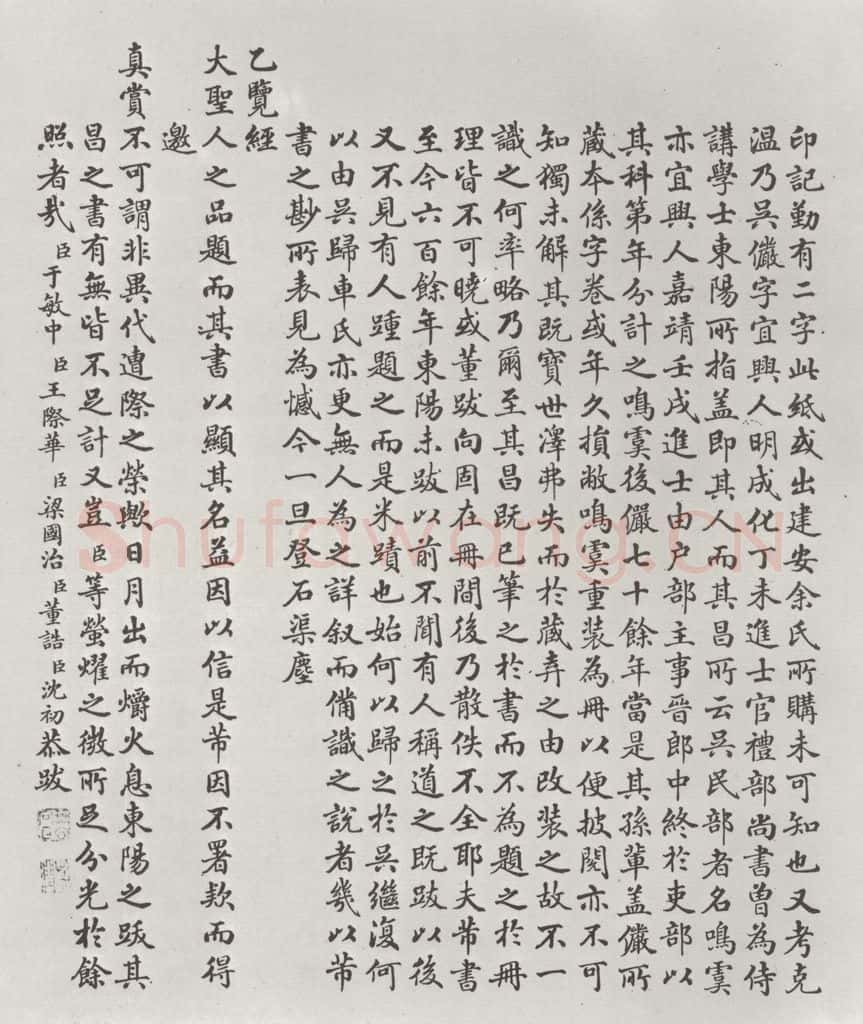 印記勤有二字此紙或出建安余氏所購未可知也又考克
温乃吳儼字宜興人明成化丁未進士官禮部尚書曾為侍
講學士東陽所指盖即其人而其昌所云吳民部者名鳴虞
亦宜興人嘉靖壬戌進士由户部主事晉郎中終於吏部以
其科第年分計之鳴虞後儼七十餘年當是其孫輩盖儼所
蔵夲係字卷或年久損敝鳴虞重裝為冊以便披閱亦不可
知獨未解其既寶世澤弗失而於蔵弆之由改裝之故不一
識之何率略乃爾至其昌既已筆之於書而不為題之於冊
理皆不可曉或董跋向固在冊間後乃散佚不全耶夫芾書
至今六百餘年東陽未跋以前不聞有人稱道之既跋以後
又不見有人踵題之而是米蹟也始何以歸之於吳繼復何
以由吳歸車氏亦更無人為之詳叙而備識之說者幾以芾
書之尠所表見為憾今一旦登石渠塵
乙覽經
大聖人之品題而其書以顯其名益因以信是芾因不署款而得
邀
真賞不可謂非異代遭際之榮歟日月出而爝火息東陽之跋其
昌之書有無皆不足計又豈臣等螢燿之微所足分光於餘
照者㢤臣于敏中臣王際華臣梁國治臣董誥臣沈初恭跋
Shufawang.CN